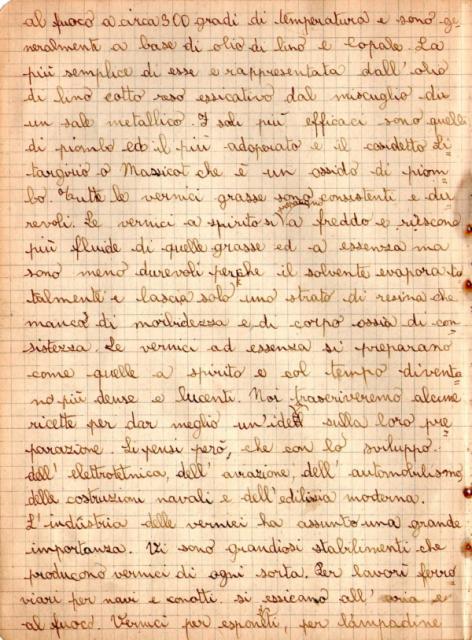 al fuoco a circa 300 gradi di temperatura e sono ge=
neralmente a base di olio di lino e Copale. La
più semplice di esse e rappresentata dall'olio
di lino cotto reso essicativo dal miscuglio di
un sale metallico. I sali più efficaci sono quelli
di piombo ed il più adoperato e il cosidetto Li=
targirio o Massicot che è un ossido di piom=
bo. Tutte le vernici grasse sono consistenti e du=
revoli. Le vernici a spirito si preparano a freddo e riescono
più fluide di quelle grasse ed a essenza ma
sono meno durevoli perche il solvente evapora to=
talmente e lascia solo uno strato di resina che
manca di morbidezza e di corpo ossia di con=
sistezza. Le vernici ad essenza si preparano
come quelle a spirito e col tempo diventa=
no più dense e lucenti. Noi trascriveremo alcune
ricette per dar meglio un'idea sulla loro pre=
parazione. Si pensi però, che con lo sviluppo
dell'elettrotetnica, dell'aviazione, dell'automobilismo,
delle costruzioni navali e dell'edilizia moderna.
L'industria delle vernici ha assunto una grande
importanza. Vi sono grandiosi stabilimenti che
producono vernici di ogni sorta. Per lavori ferro=
viari per navi e canotti. si essicano all'aria e
al fuoco. Vernici per esporsti, per lampadine